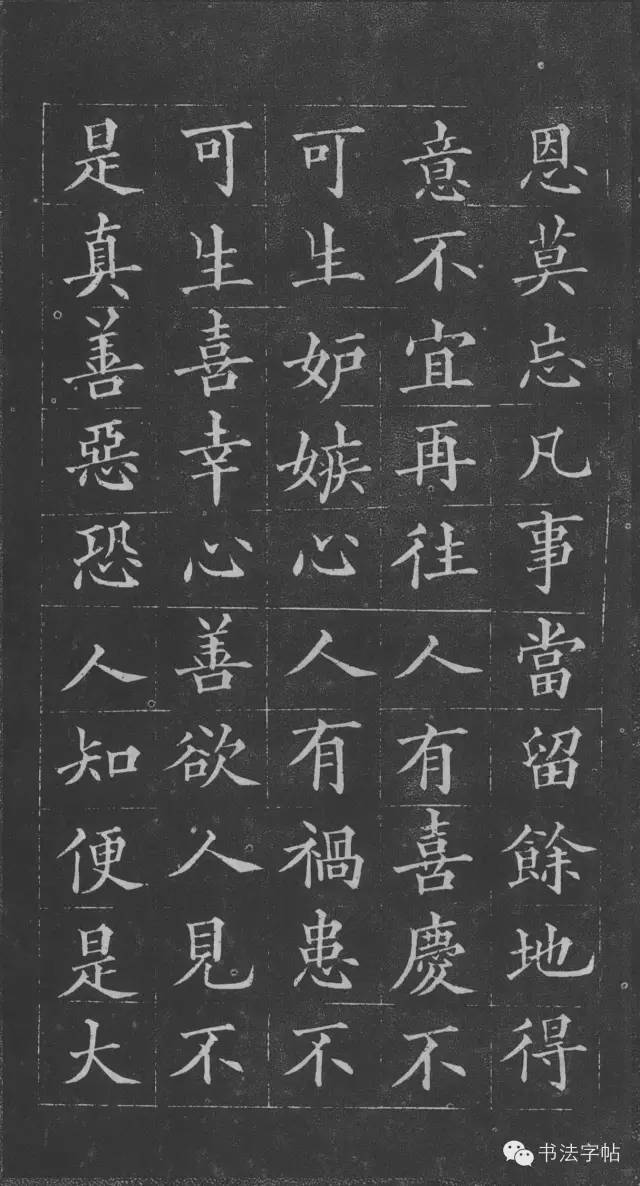 恩莫忘凡事當留餘地得
意不宜再往人有喜慶不
可生妒嫉心人有禍患不
可生喜幸心善欲人見不
是真善惡恐人知便是大
书法字帖